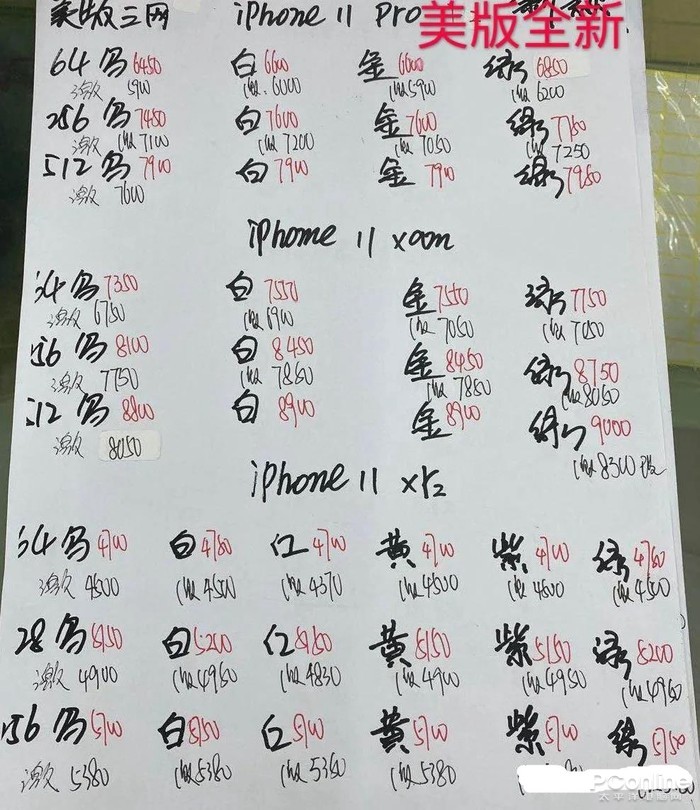 美版三网 iPhone 11 Pro 美版全新
64 乌 6450 白 6600 金 6600 绿 6850
激 5900 激 6000 激 5900 激 6200
256 乌 7450 白 7600 金 7600 绿 7750
激 7100 激 7200 激 7050 激 7250
512 乌 7900 白 7900 金 7900 绿 7950
激 7600
iPhone 11 xoom
64 乌 7350 白 7550 金 7550 绿 7750
激 6750 激 6900 激 7050 激 7050
256 乌 8100 白 8450 金 8450 绿 8750
激 7750 激 7850 激 7850 激 8050
512 乌 8800 白 8900 金 8900 绿 9000
激 8050 激 8300
iPhone 11 xr2
64 乌 4700 白 4780 红 4700 黄 4700 紫 4700 绿 4750
激 4500 激 4500 激 4370 激 4500 激 4500 激 4500
128 乌 5150 白 5200 红 5150 黄 5150 紫 5150 绿 5200
激 4900 激 4950 激 4830 激 4900 激 4950 激 4950
256 乌 5700 白 5750 红 5700 黄 5700 紫 5700 绿 5750
激 5380 激 5380 激 5350 激 5380
PConline
太平洋电脑网